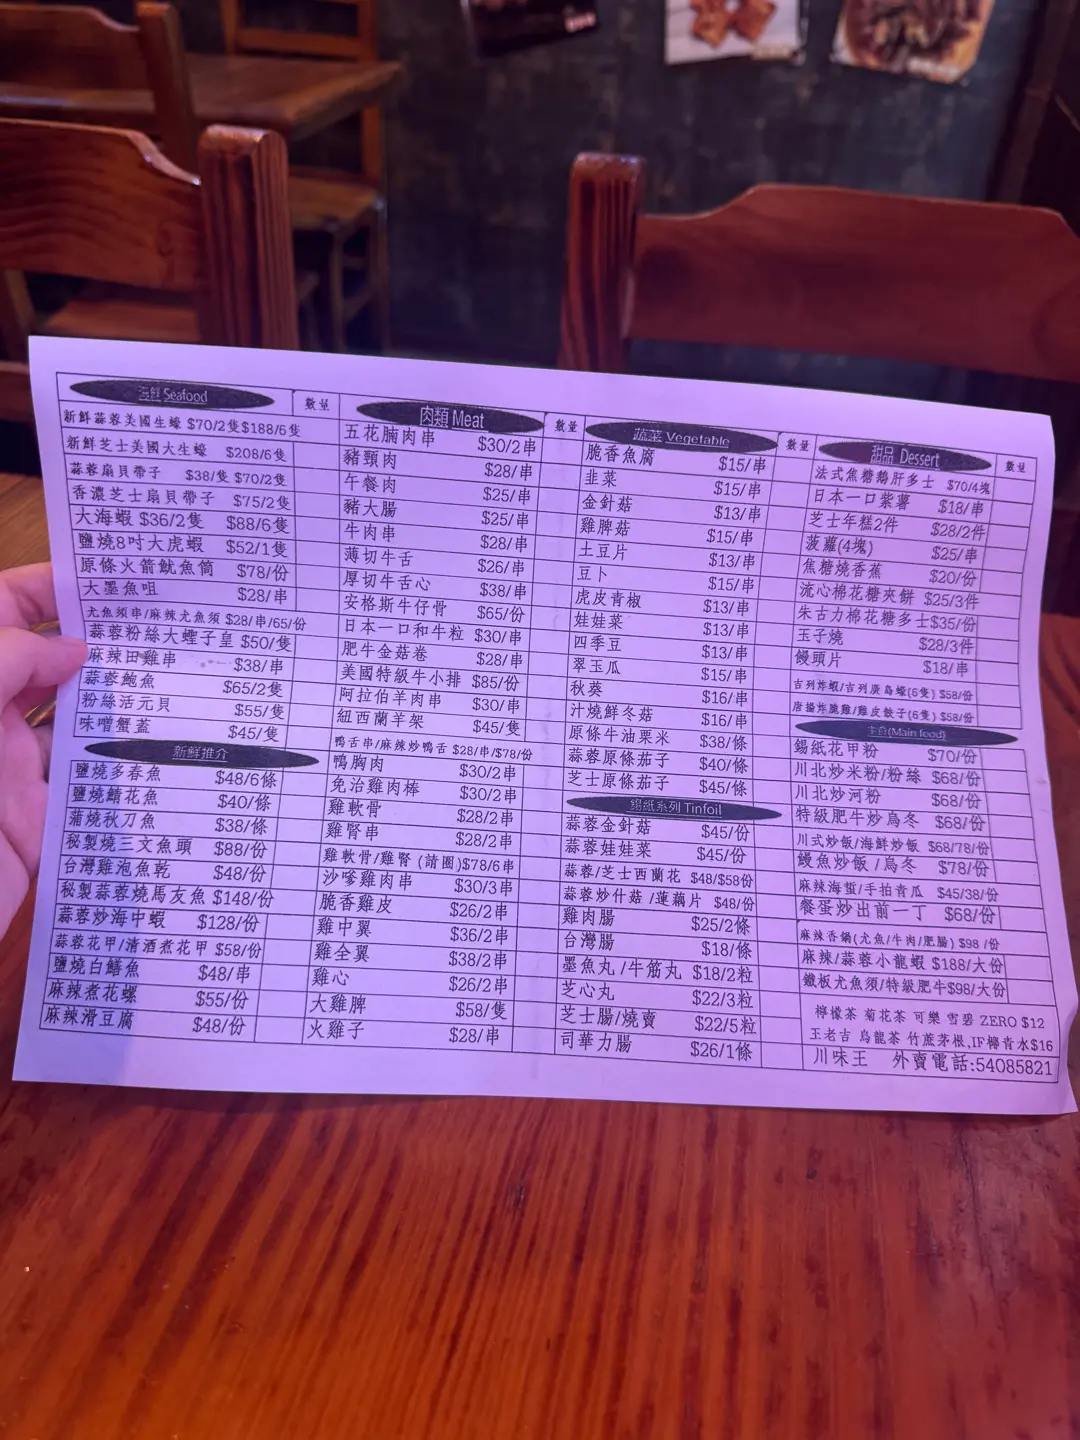 海鮮 Seafood 數量
新鮮蒜蓉美國生蠔 $70/2隻$188/6隻
新鮮芝士美國大生蠔 $208/6隻
蒜蓉扇貝帶子 $38/隻 $70/2隻
香濃芝士扇貝帶子 $75/2隻
大海蝦 $36/2隻 $88/6隻
鹽燒8吋大虎蝦 $52/1隻
原條火箭魷魚筒 $78/份
大墨魚咀 $28/串
尤魚須串/麻辣尤魚須 $28/串/65/份
蒜蓉粉絲大蟶子皇 $50/隻
麻辣田雞串 $38/串
蒜蓉鮑魚 $65/2隻
粉絲活元貝 $55/隻
味噌蟹蓋 $45/隻
新鮮推介
鹽燒多春魚 $48/6條
鹽燒鯖花魚 $40/條
蒲燒秋刀魚 $38/條
秘製燒三文魚頭 $88/份
台灣雞泡魚乾 $48/份
秘製蒜蓉燒馬友魚 $148/份
蒜蓉炒海中蝦 $128/份
蒜蓉花甲/清酒煮花甲 $58/份
鹽燒白鱔魚 $48/串
麻辣煮花螺 $55/份
麻辣滑豆腐 $48/份
肉類 Meat 數量
五花腩肉串 $30/2串
豬頸肉 $28/串
午餐肉 $25/串
豬大腸 $25/串
牛肉串 $28/串
薄切牛舌 $26/串
厚切牛舌心 $38/串
安格斯牛仔骨 $65/份
日本一口和牛粒 $30/串
肥牛金菇卷 $28/串
美國特級牛小排 $85/份
阿拉伯羊肉串 $30/串
紐西蘭羊架 $45/隻
鴨舌串/麻辣炒鴨舌 $28/串/$78/份
鴨胸肉 $30/2串
免治雞肉棒 $30/2串
雞軟骨 $28/2串
雞腎串 $28/2串
雞軟骨/雞腎 (請圈)$78/6串
沙嗲雞肉串 $30/3串
脆香雞皮 $26/2串
雞中翼 $36/2串
雞全翼 $38/2串
雞心 $26/2串
大雞脾 $58/隻
火雞子 $28/串
蔬菜 Vegetable 數量
脆香魚腐 $15/串
韭菜 $15/串
金針菇 $13/串
雞脾菇 $15/串
土豆片 $13/串
豆卜 $15/串
虎皮青椒 $13/串
娃娃菜 $13/串
四季豆 $13/串
翠玉瓜 $15/串
秋葵 $16/串
汁燒鮮冬菇 $16/串
原條牛油栗米 $38/條
蒜蓉原條茄子 $40/條
芝士原條茄子 $45/條
錫紙系列 Tinfoil
蒜蓉金針菇 $45/份
蒜蓉娃娃菜 $45/份
蒜蓉/芝士西蘭花 $48/$58份
蒜蓉炒什菇 /蓮藕片 $48/份
雞肉腸 $25/2條
台灣腸 $18/條
墨魚丸 /牛筋丸 $18/2粒
芝心丸 $22/3粒
芝士腸/燒賣 $22/5粒
司華力腸 $26/1條
甜品 Dessert 數量
法式焦糖鵝肝多士 $70/4塊
日本一口紫薯 $18/串
芝士年糕2件 $28/2件
菠蘿(4塊) $25/串
焦糖燒香蕉 $20/份
流心棉花糖夾餅 $25/3件
朱古力棉花糖多士$35/份
玉子燒 $28/3件
饅頭片 $18/串
吉列炸蝦/吉列廣島蠔(6隻) $58/份
唐揚炸脆雞/雞皮餃子(6隻) $58/份
主食(Main food)
錫紙花甲粉 $70/份
川北炒米粉/粉絲 $68/份
川北炒河粉 $68/份
特級肥牛炒烏冬 $68/份
川式炒飯/海鮮炒飯 $68/78/份
鰻魚炒飯 /烏冬 $78/份
麻辣海蜇/手拍青瓜 $45/38/份
餐蛋炒出前一丁 $68/份
麻辣香鍋(尤魚/牛肉/肥腸) $98 /份
麻辣/蒜蓉小龍蝦 $188/大份
鐵板尤魚須/特級肥牛$98/大份
檸檬茶 菊花茶 可樂 雪碧 ZERO $12
王老吉 烏龍茶 竹蔗茅根,IF椰青水$16
川味王 外賣電話:54085821